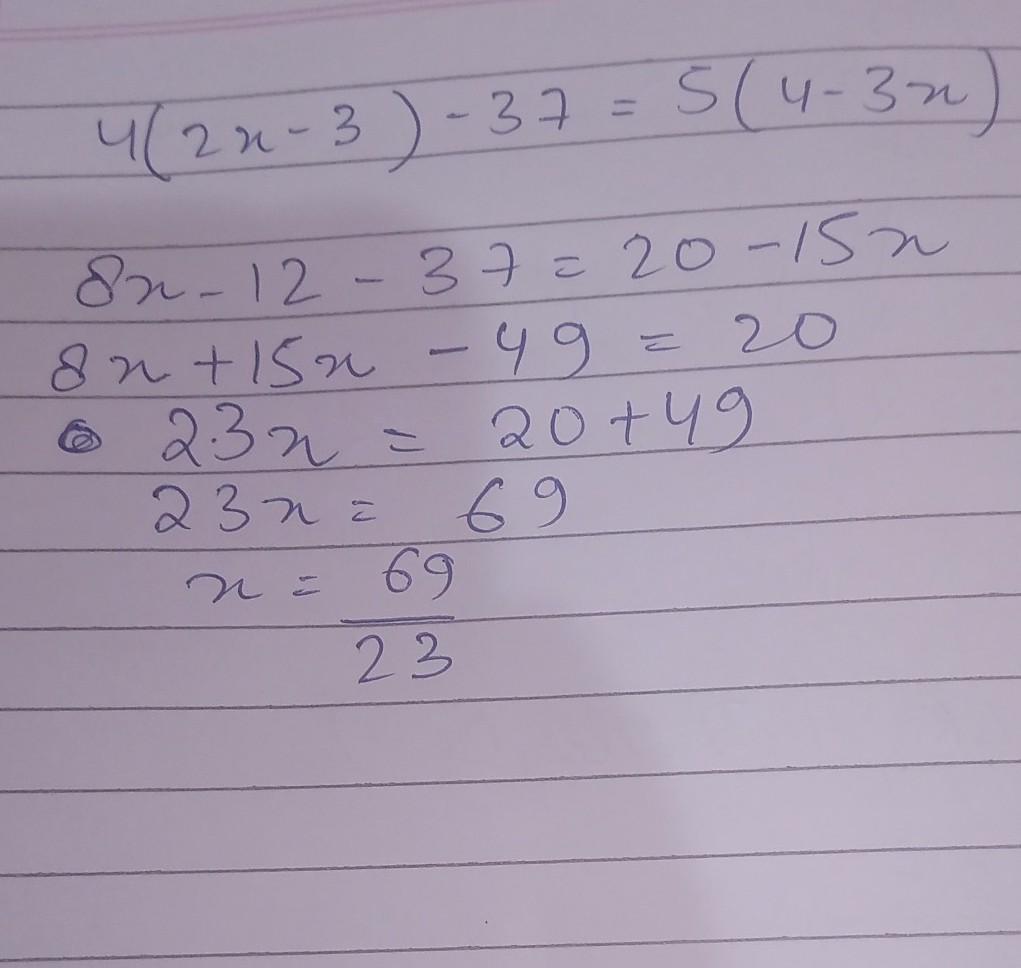 4(2x-3)-37 = 5(4-3x)
8x-12-37 = 20-15x
8x+15x-49 = 20
23x = 20+49
23x = 69
x = 69
23